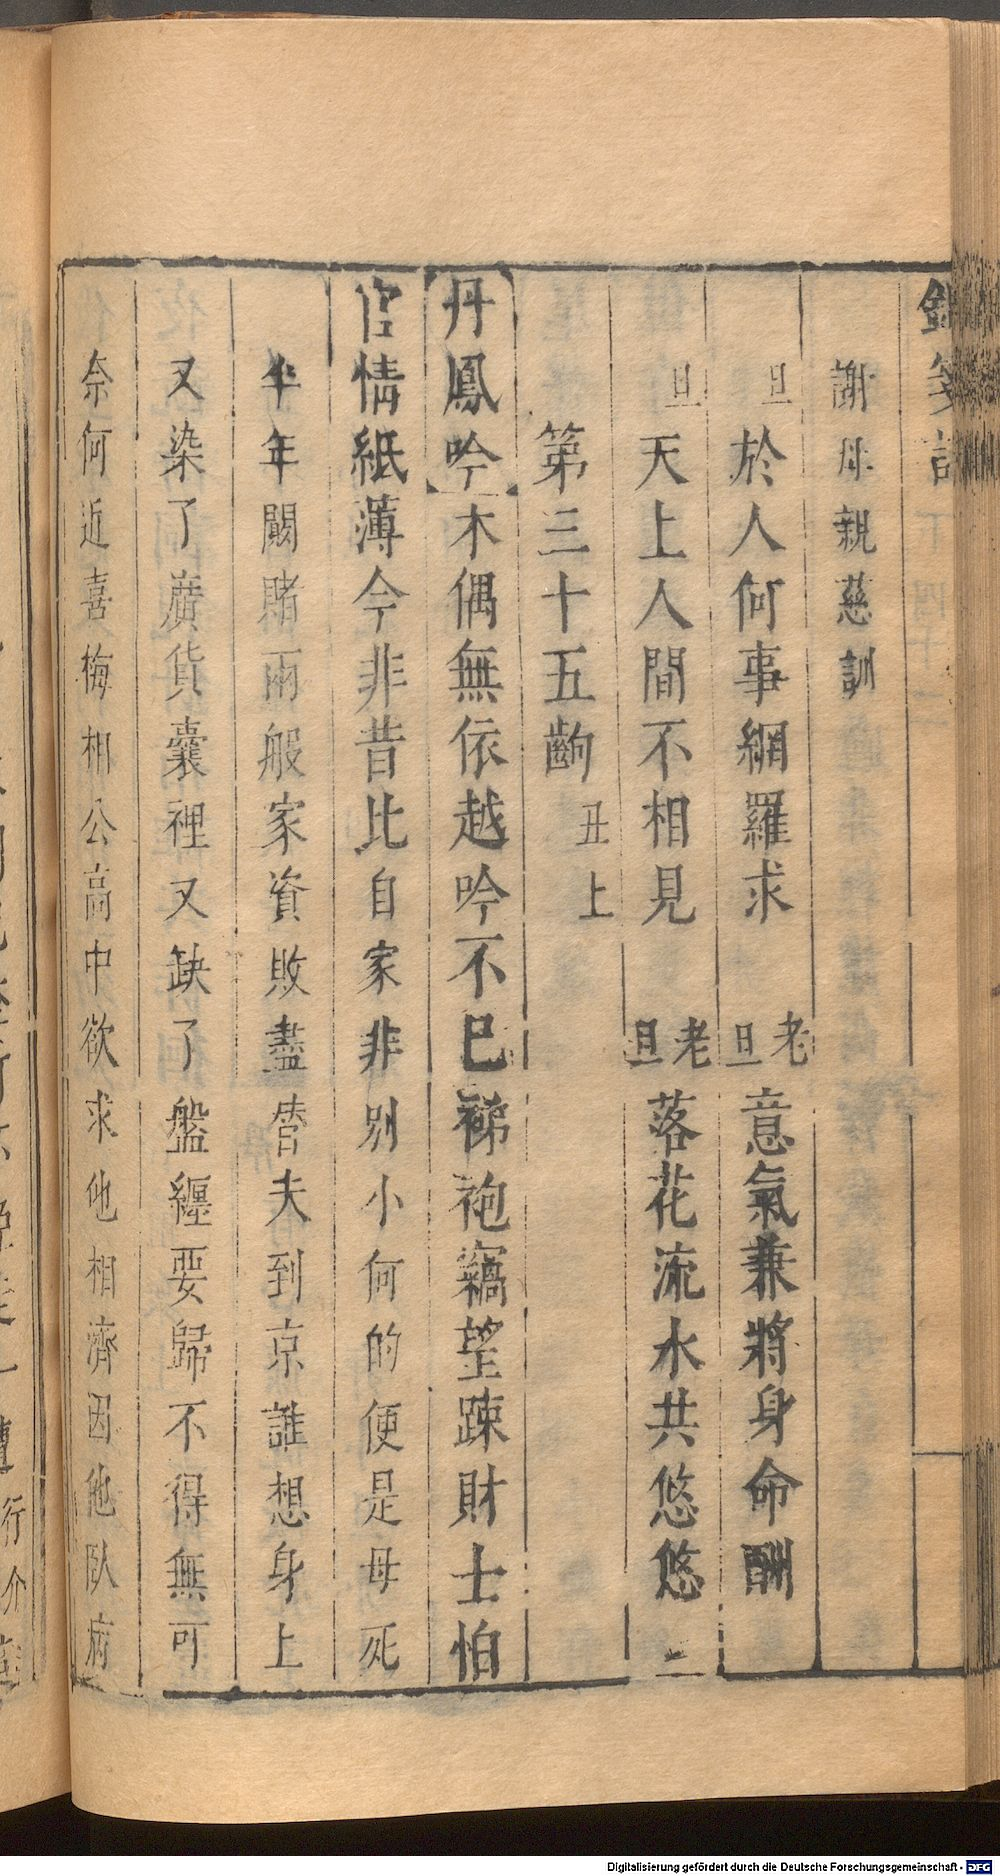 謝母親慈訓
旦 於人何事網羅求 老旦 意氣兼將身命酬
旦 天上人間不相見 老旦 落花流水共悠悠 二
第三十五齣 丑上
丹鳳吟 木偶無依越吟不已綈袍竊望踈財士怕
官情紙薄今非昔比自家非別小何的便是母死
半年闞賭兩般家資敗盡眘夫到京誰想身上
又染了廣貨囊裡又缺了盤纏要歸不得無可
奈何近喜梅相公高中欲求他相濟因他臥病
Digitalisierung gefördert durch die Deutsche Forschungsgemeinschaft - DFG